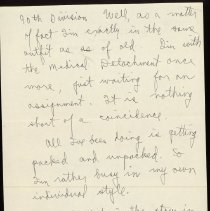 90th Division. Well, as a matter
of fact I'm exactly in the same
outfit as of old. I'm with
the Medical Detachment once
more, just waiting for an
assignment. It is nothing
short of a coincidence.
All I've been doing is getting
packed and unpacked. So
I'm rather busy in my own
individual style.
in the